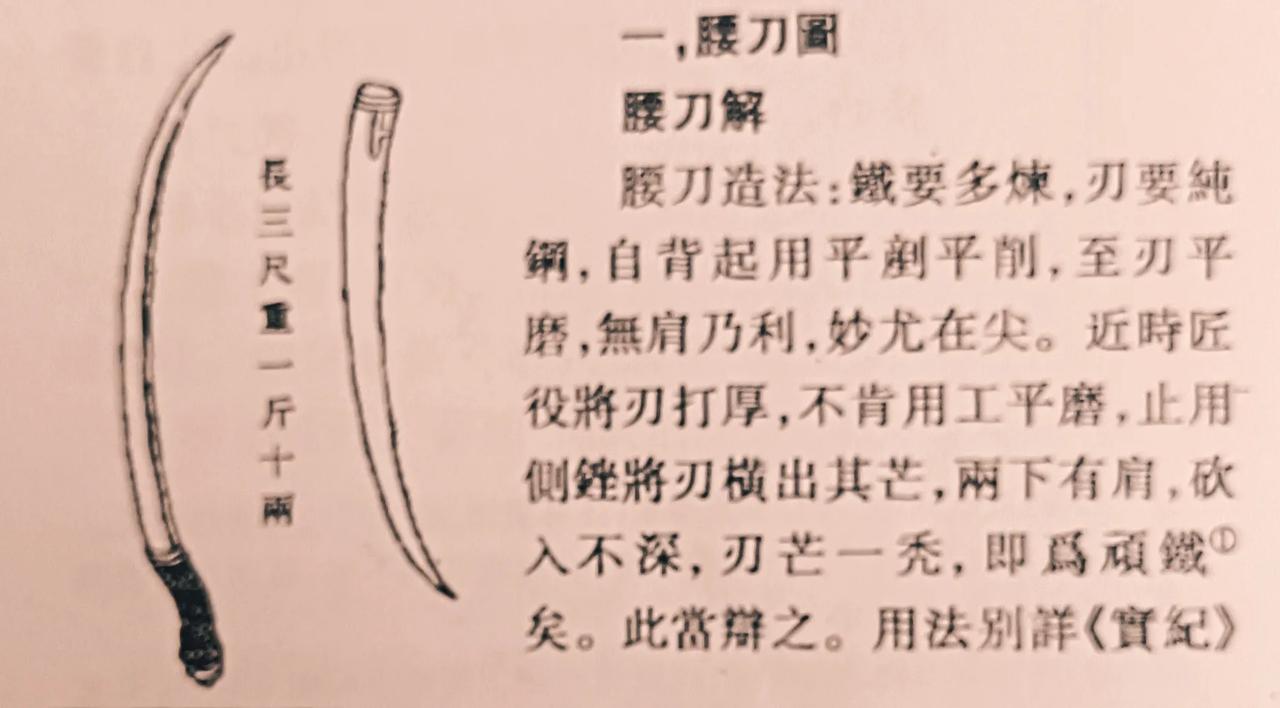 長三尺重一斤十兩
一,腰刀圖
腰刀解
腰刀造法:鐵要多煉,刃要純
鋼,自背起用平剷平削,至刃平
磨,無肩乃利,妙尤在尖。近時匠
役將刃打厚,不肯用工平磨,止用
側銼將刃橫出其芒,兩下有肩,砍
入不深,刃芒一禿,即爲頑鐵①
矣。此當辯之。用法別詳《實紀》